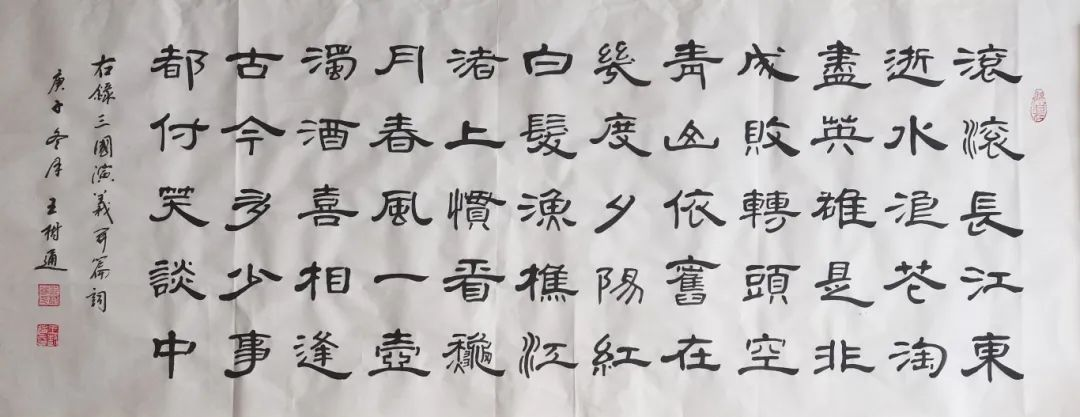 滾滾長江東
逝水浪花淘
盡英雄是非
成敗轉頭空
青山依舊在
幾度夕陽紅
白髮漁樵江
渚上慣看龝
月春風一壺
濁酒喜相逢
古今多少事
都付笑談中
右錄三國演義开篇詞
庚子冬月 王树通